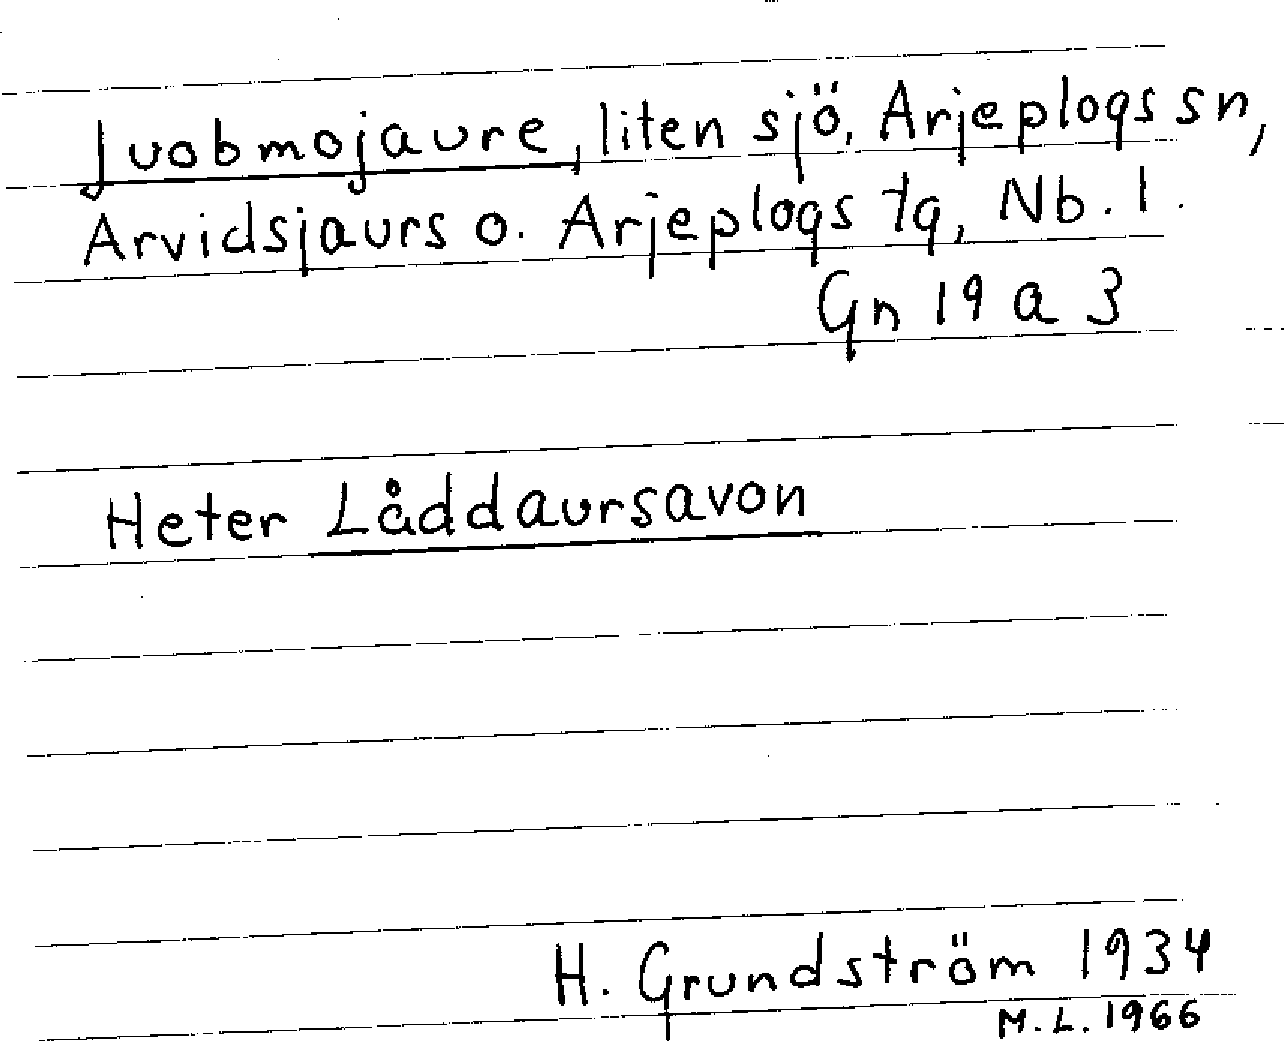 Juobmojaure, liten sjö, Arjeplogs sn,
Arvidsjaurs o. Arjeplogs tg, Nb. l.
Gn 19 a 3
Heter Låddaursavon
H. Grundström 1934
M.L. 1966